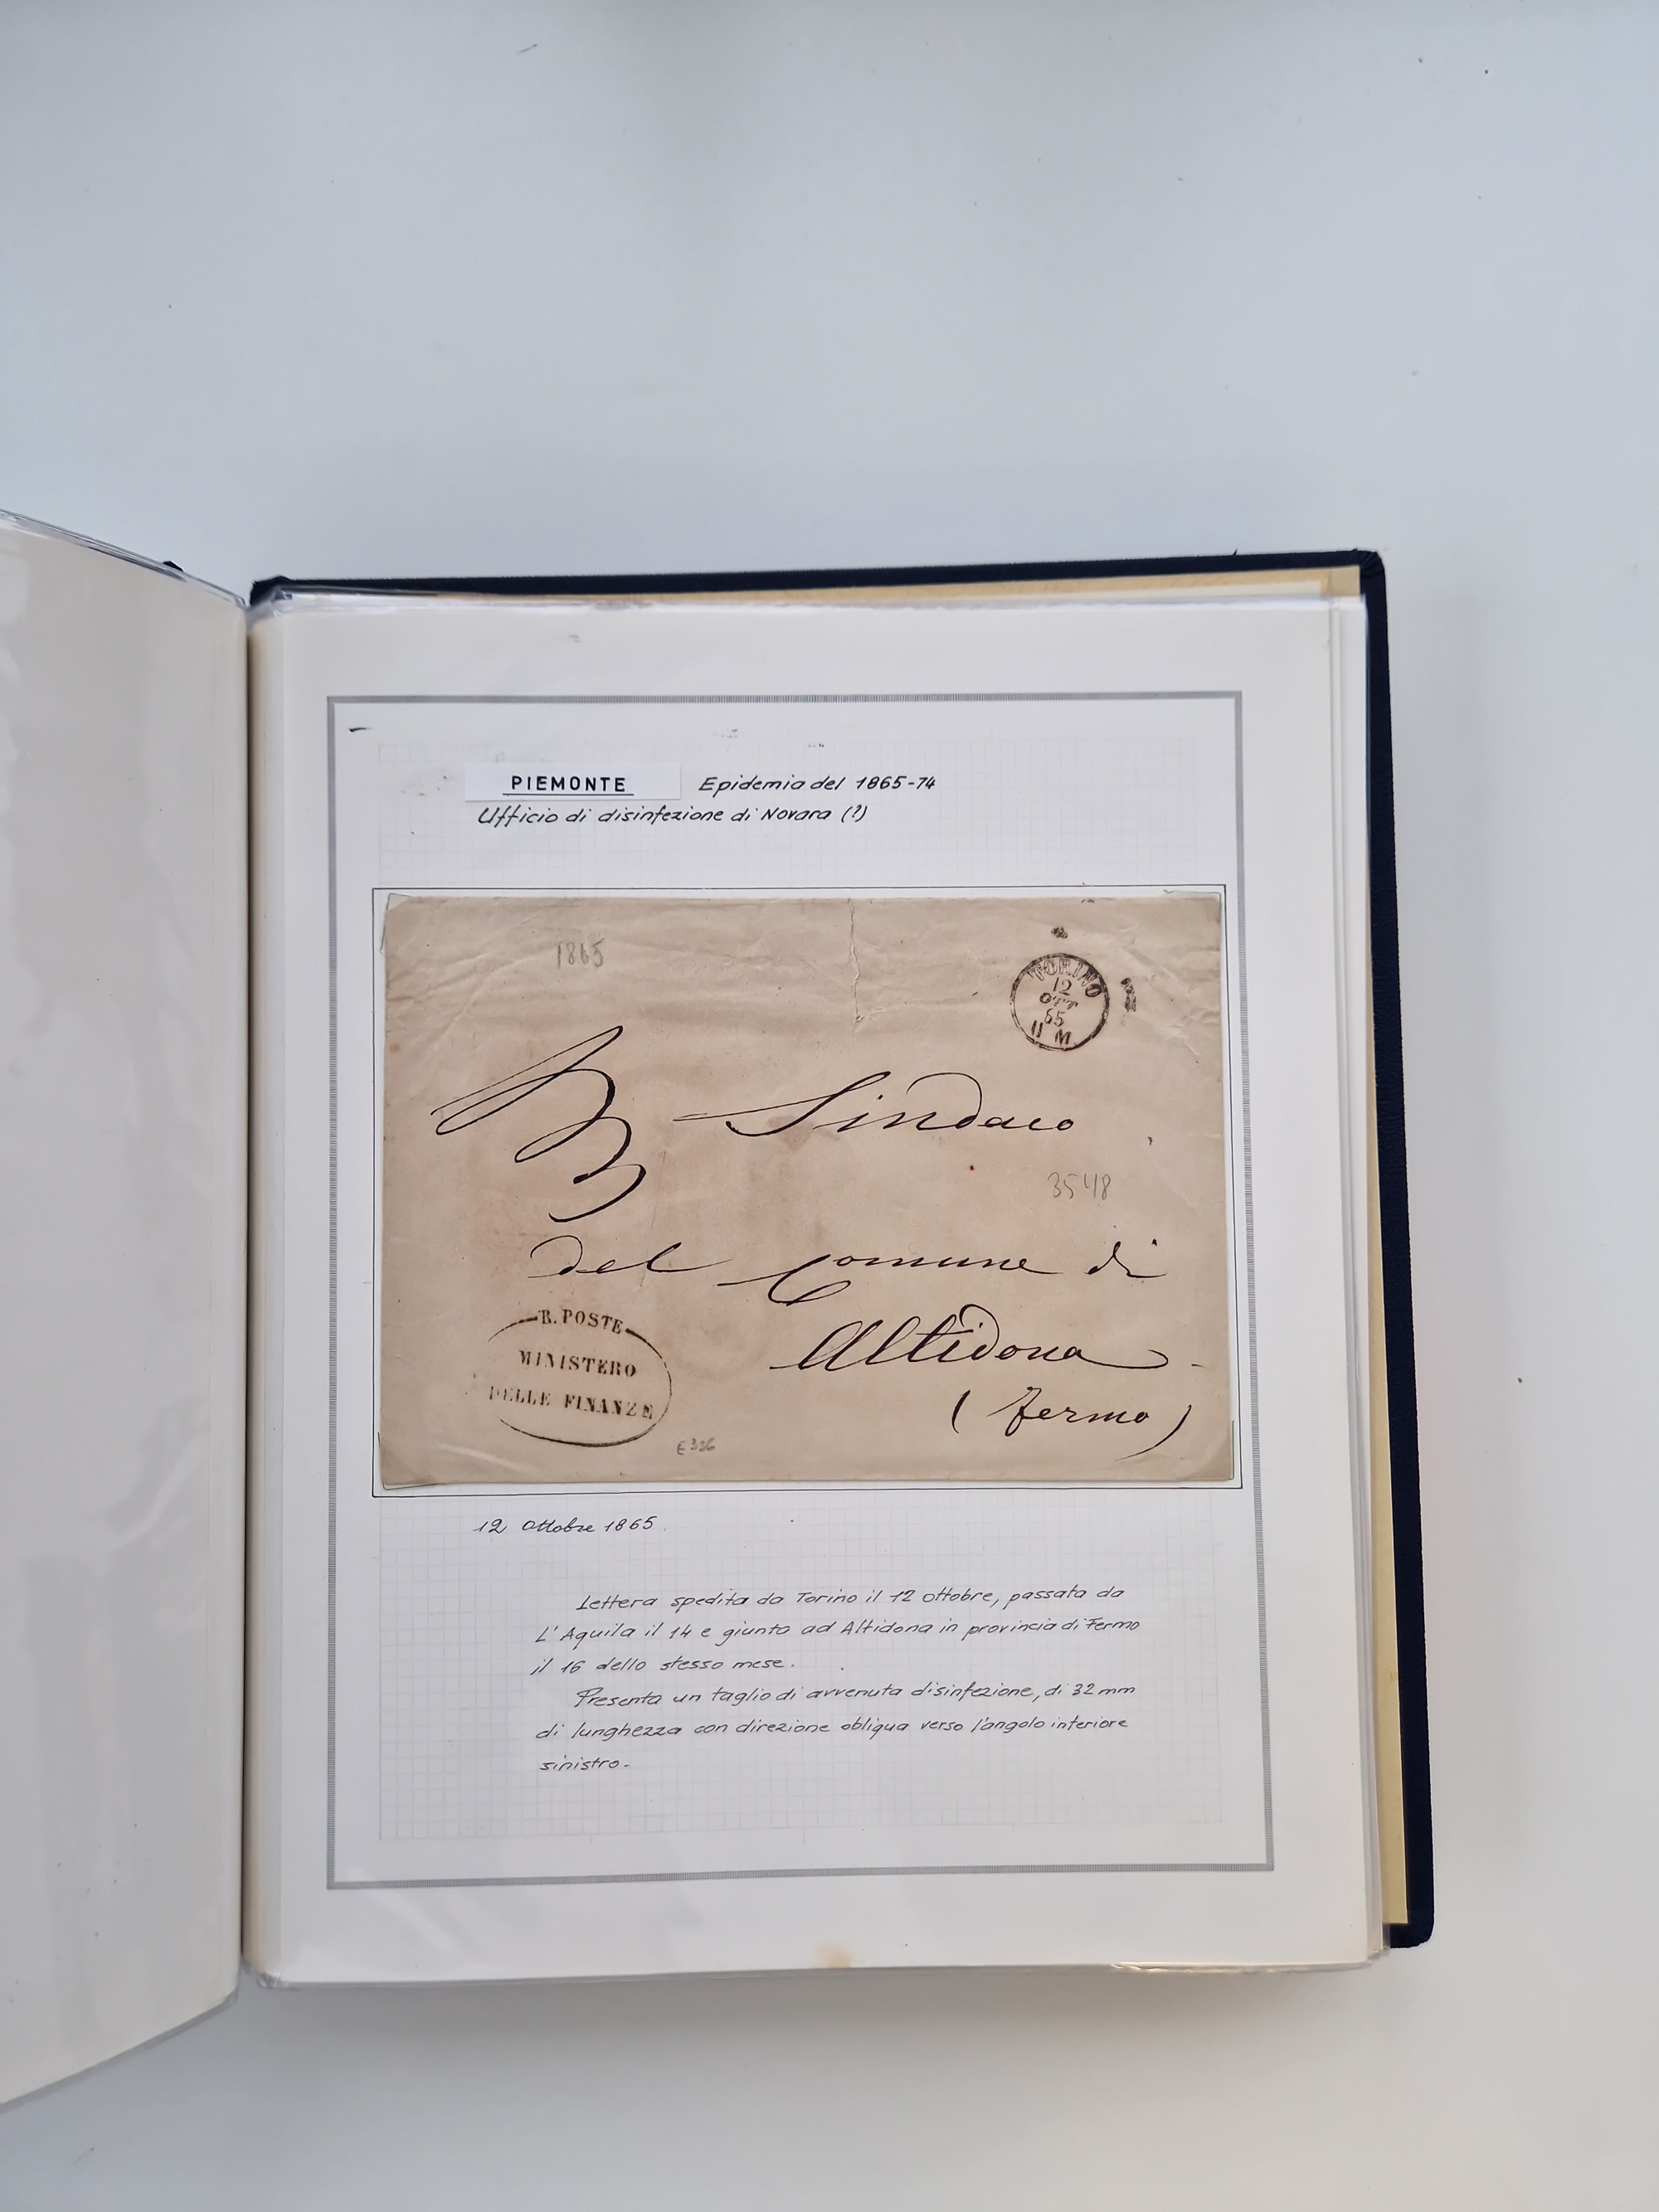 PIEMONTE Epidemia del 1865-74
Ufficio di disinfezione di Novara (?)
1865
TORINO
12
OTT
65
11 M
Sindaco
3548
del Comune di
R. POSTE
MINISTERO
DELLE FINANZE
Altidona
(Fermo)
E 336
12 Ottobre 1865.
Lettera spedita da Torino il 12 ottobre, passata da
L'Aquila il 14 e giunta ad Altidona in provincia di Fermo
il 16 dello stesso mese.
Presenta un taglio di avvenuta disinfezione, di 32 mm
di lunghezza con direzione obliqua verso l'angolo inferiore
sinistro.